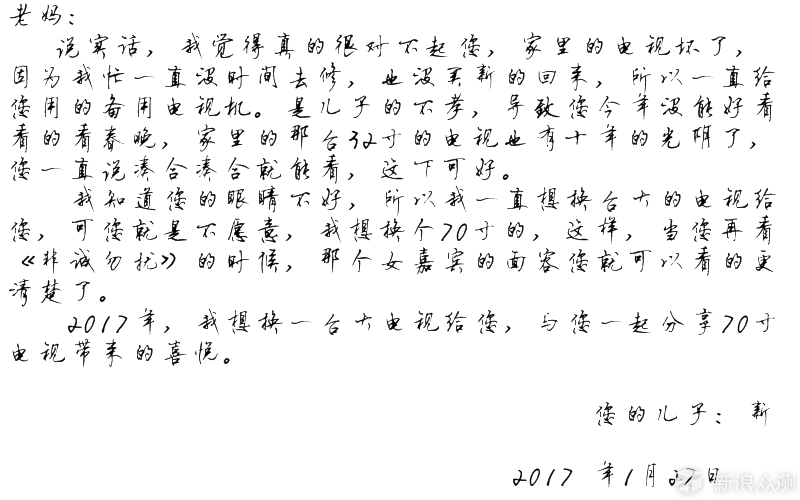 老妈：
说实话，我觉得真的很对不起您，家里的电视坏了，
因为我忙一直没时间去修，也没买新的回来，所以一直给
您用的备用电视机。是儿子的不孝，导致您今年没能好看
看的看春晚，家里的那台32寸的电视也有十年的光阴了，
您一直说凑合凑合就能看，这下可好。
我知道您的眼睛不好，所以我一直想换台大的电视给
您，可您就是不愿意，我想换个70寸的，这样，当您再看
《非诚勿扰》的时候，那个女嘉宾的面容您就可以看的更
清楚了。
2017年，我想换一台大电视给您，与您一起分享70寸
电视带来的喜悦。
您的儿子：新
2017 年1月27日
新浪众测